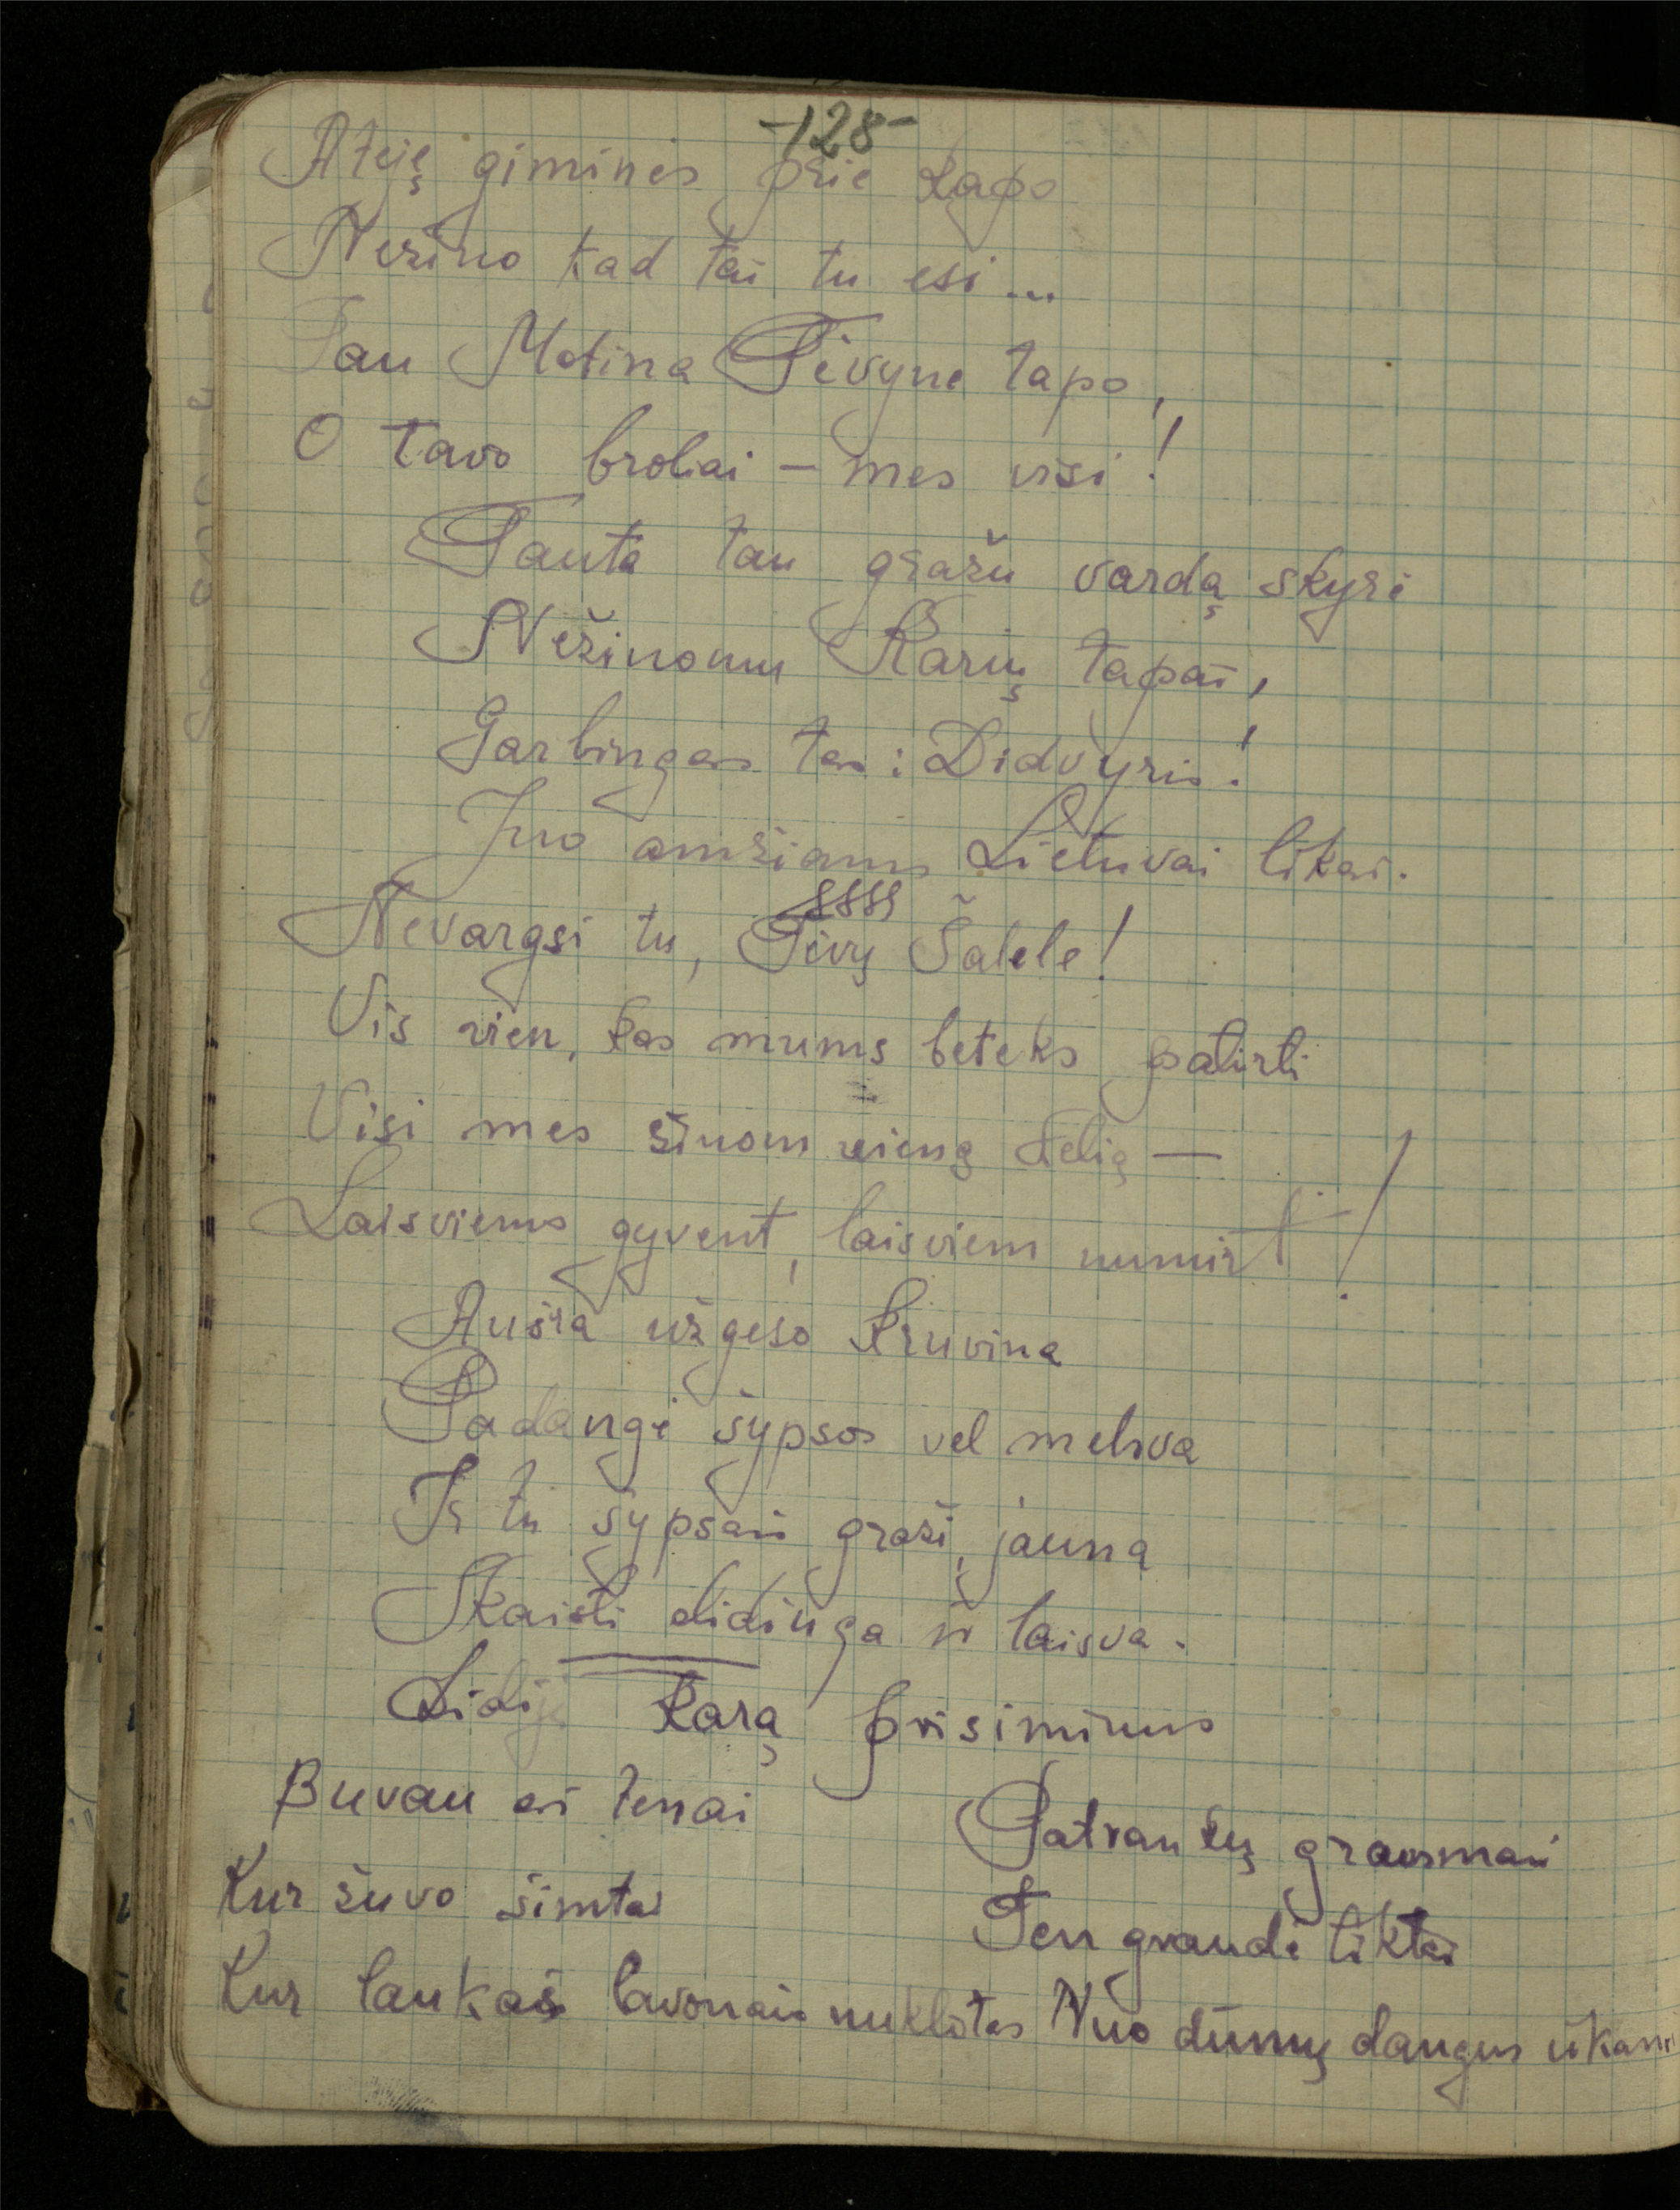 -128-
Atėję giminės prie kapo
Nežino kad tai tu esi...
Tau Motina Tėvynė tapo,
O tavo broliai – mes visi!
Tauta tau gražų vardą skyrė
Nežinomu Kariu tapai,
Garbingas tas: Didvyris!
Juo amžiams Lietuvai likai.
Nevargsi tu, Tėvų Šalele!
Vis vien, kas mums beteks patirti
Visi mes žinom vieną kelią —
Laisviems gyvent, laisviem numirt!
Aušra užgeso kruvina
Padangė šypsos vel melsva
Ir tu šypsais graži, jauna
Skaisti didinga ir laisva.
Didijį karą prisiminus
Buvau aš tenai
Kur žuvo šimtai
Kur laukas lavonais nuklotas
Patrankų grausmai
Ten graudė tiktai
Nuo dūmų dangus